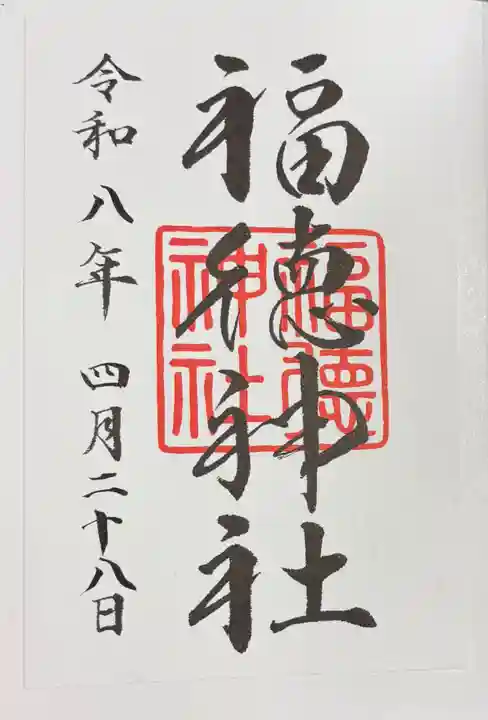 福徳神社
福德
神社
令和八年 四月二十八日